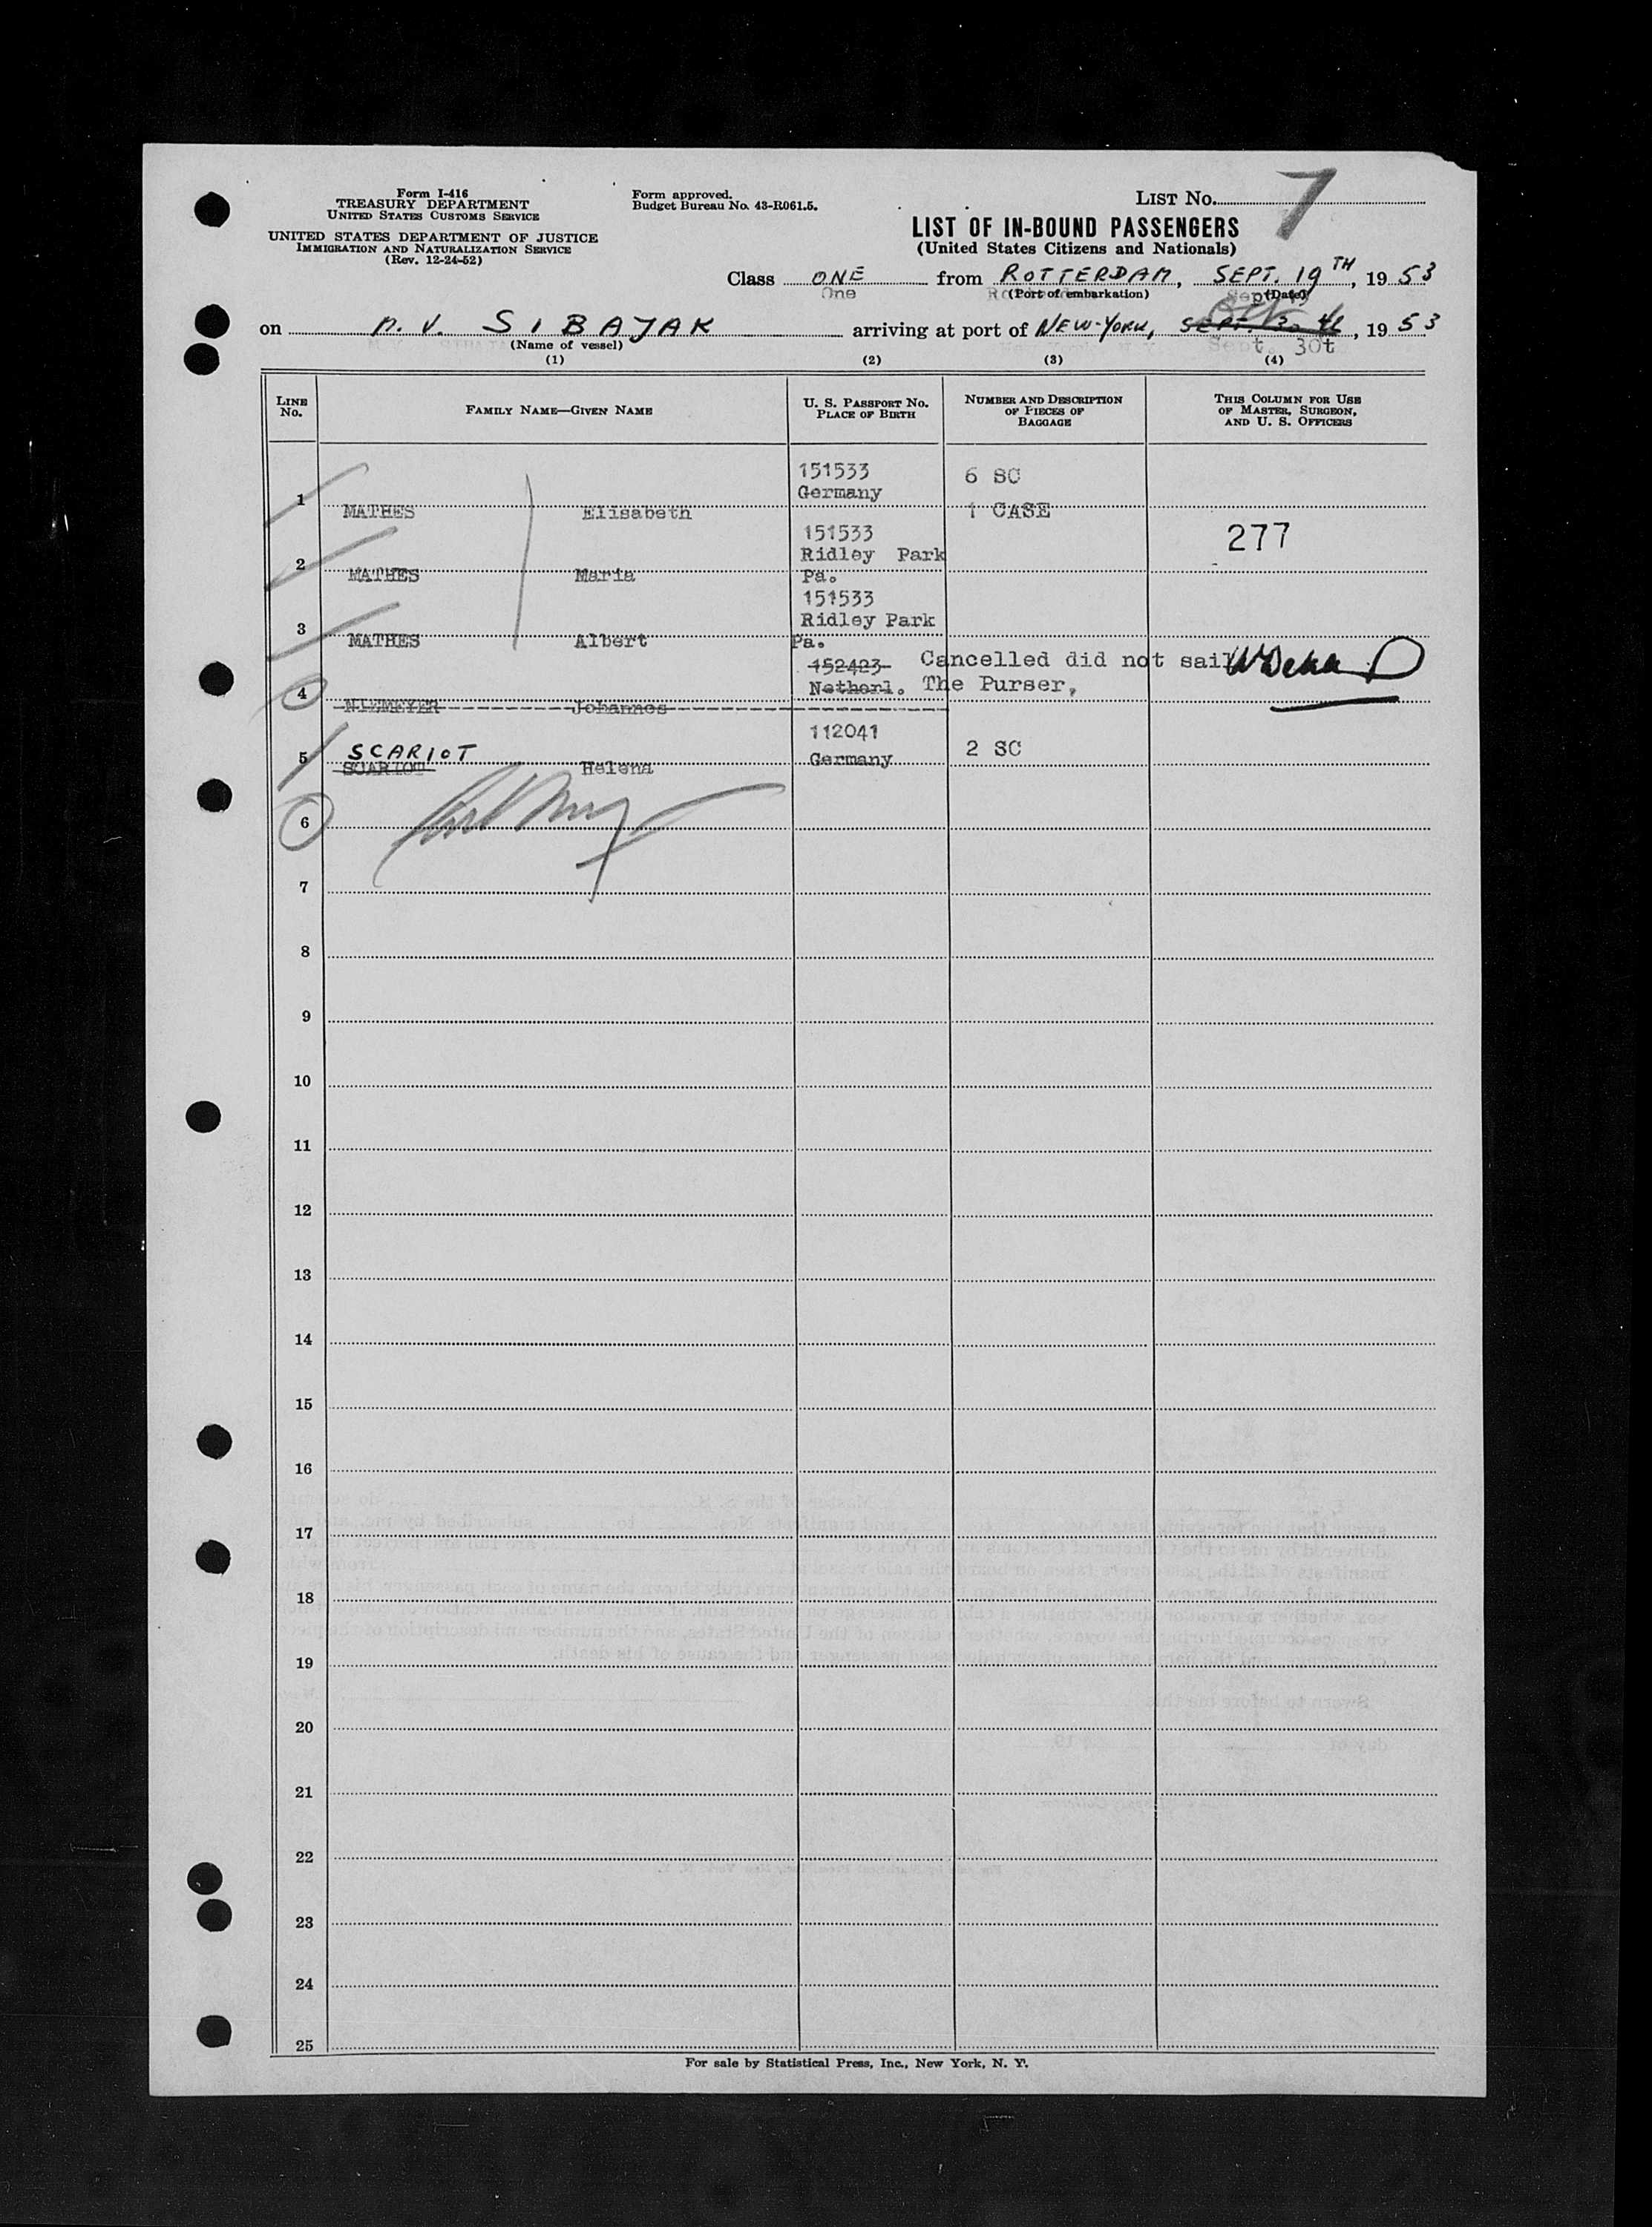 Form I-416
TREASURY DEPARTMENT
UNITED STATES CUSTOMS SERVICE
UNITED STATES DEPARTMENT OF JUSTICE
IMMIGRATION AND NATURALIZATION SERVICE
(Rev. 12-24-52)
Form approved.
Budget Bureau No. 43-R061.5.
LIST No. 7
LIST OF IN-BOUND PASSENGERS
(United States Citizens and Nationals)
Class ONE from ROTTERDAM, SEPT. 19TH, 1953
One (Port of embarkation) (Date)
on M. V. SIBAJAK arriving at port of NEW-YORK, SEPT. 30 th, 1953
(Name of vessel) Sept. 30t
(1) (2) (3) (4)
LINE No.
FAMILY NAME—GIVEN NAME
U. S. PASSPORT No.
PLACE OF BIRTH
NUMBER AND DESCRIPTION
OF PIECES OF
BAGGAGE
THIS COLUMN FOR USE
OF MASTER, SURGEON,
AND U. S. OFFICERS
151533 6 SC
Germany
1 MATHES Elisabeth 1 CASE
151533 277
Ridley Park
2 MATHES Maria Pa.
151533
Ridley Park
3 MATHES Albert Pa.
152423 Cancelled did not sail
Netherl. The Purser,
4 NIEMEYER Johannes
112041
5 SCARIOT 2 SC
SCARIOT Helena Germany
6
7
8
9
10
11
12
13
14
15
16
17
18
19
20
21
22
23
24
25
For sale by Statistical Press, Inc., New York, N. Y.